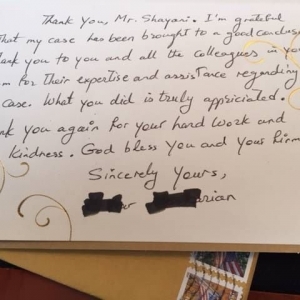 Thank you, Mr. Shayani. I'm grateful
that my case has been brought to a good conclusi
hank you to you and all the colleagues in you
m for Their expertise and assistance regarding
case. What you did is truly appriciated.
nk you again for your hard work and
kindness. God bless you and your firm
Sincerely Yours,
rian